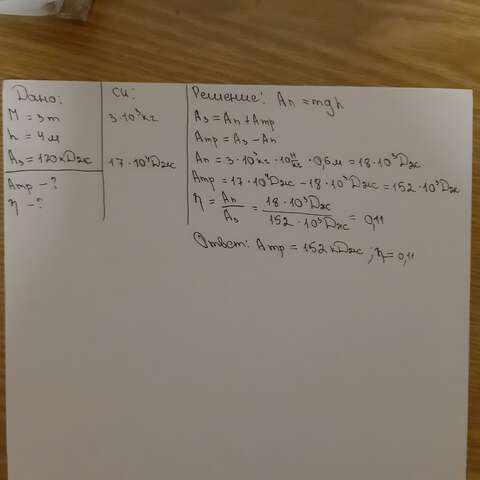 Дано:
М = 3т
h = 4м
Aз = 170кДж
Aтр - ?
η - ?
СИ:
3·10³кг
17·10⁴Дж
Решение: Aп = mgh
Aз = Aп + Aтр
Aтр = Aз - Aп
Aп = 3·10³кг · 10 Н/кг · 0,6м = 18·10³Дж
Aтр = 17·10⁴Дж - 18·10³Дж = 152·10³Дж
η = Aп/Aз = 18·10³Дж/152·10³Дж = 0,11
Ответ: Aтр = 152кДж; η = 0,11